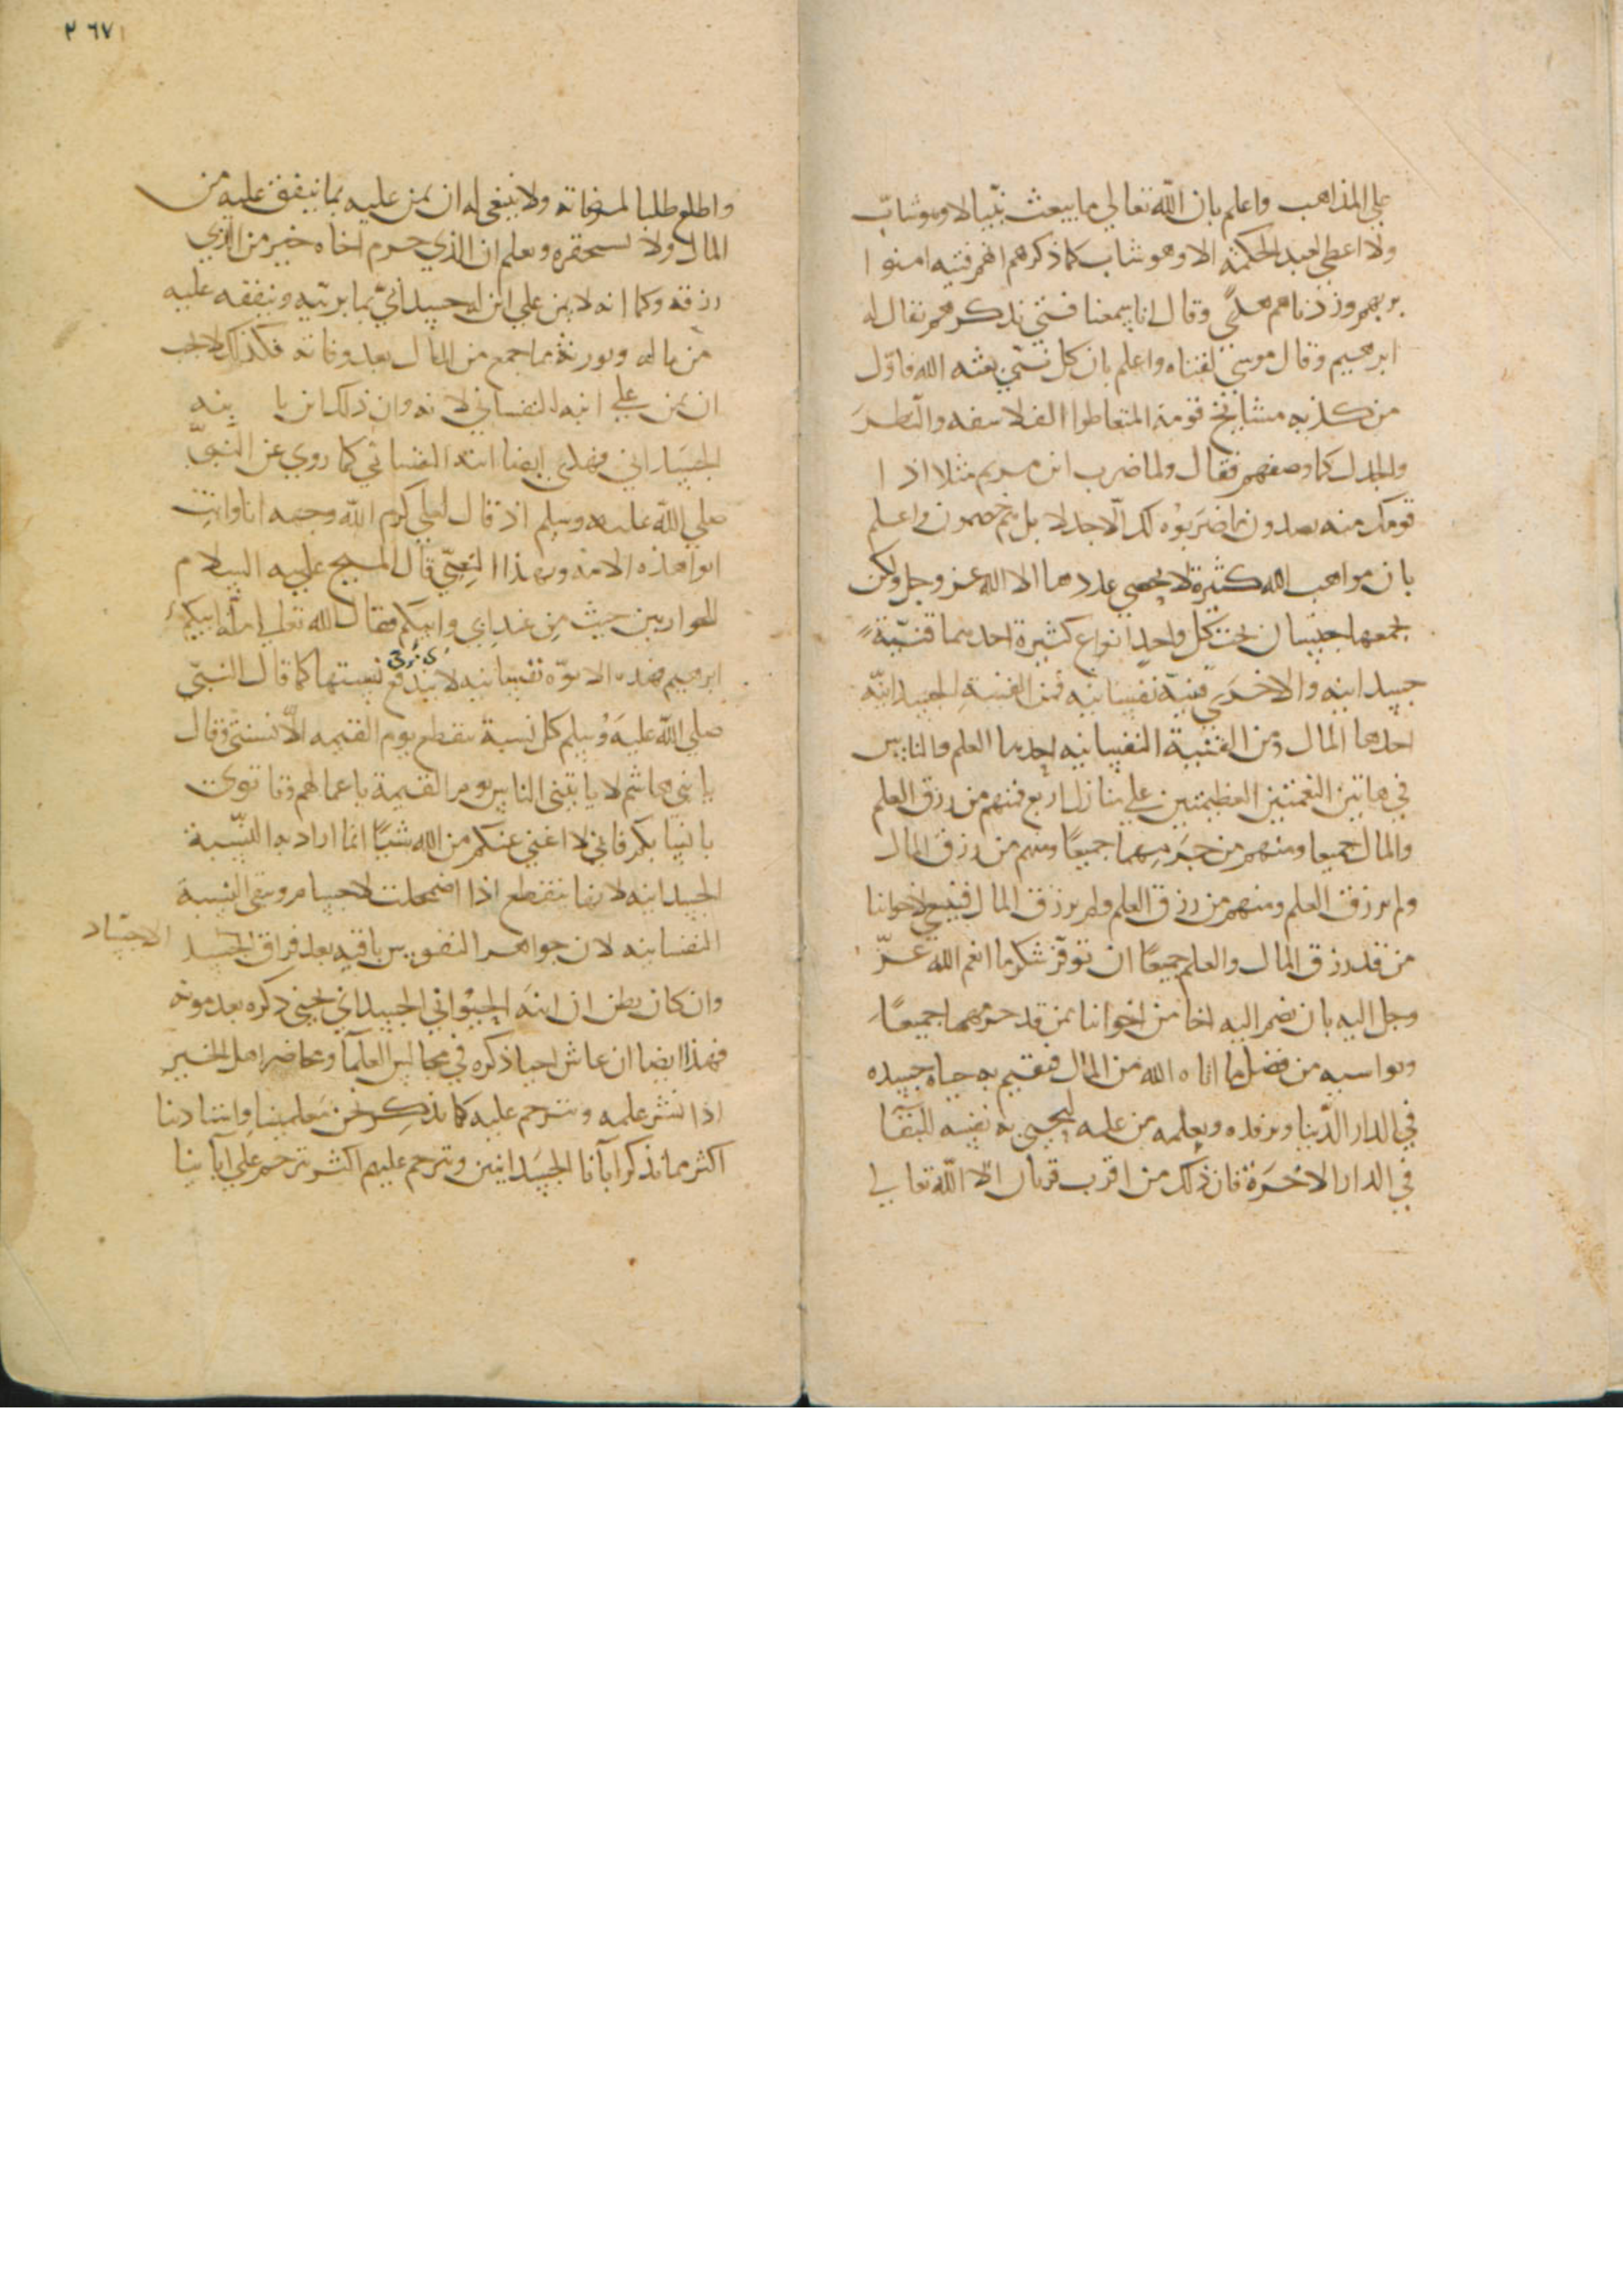 علي المذاهب واعلم بان الله تعالي ما يبعث نبيا الا وهو شاب
ولا اعطي لعبد الحكمة الا وهو شاب كما ذكرهم انهم فتيه امنوا
بربهم وزدناهم هدي وقال انا سمعنا فتي يذكرهم يقال له
ابرهيم وقال موسي لفتاه واعلم بان كل نبي بعثه الله فاول
من كذبه مشايخ قومه المتعاطوا الفلاسفه والنظر
والجدل كما وصفهم فقال ولما ضرب ابن مريم مثلا اذا
قومك منه يصدون ما ضربوه لك الا جدلا بل هم خصمون واعلم
بان مواهب الله كثيرة لا يحصي عددها الا الله عز وجل ولكن
يجمعها جنسان تحت كل واحد انواع كثيرة احديهما قنية
جسدانيه والاخري قنية نفسانيه فمن القنية الجسدانيه
احدها المال ومن القنية النفسانيه احديها العلم والناس
في هاتين النعمتين العظيمتين علي منازل اربع فمنهم من رزق العلم
والمال جميعا ومنهم من حرمهما جميعا ومنهم من رزق المال
ولم يرزق العلم ومنهم من رزق العلم ولم يرزق المال فينبغي لاخواننا
من قد رزق المال والعلم جميعا ان توفر شكر ما انعم الله عز
وجل اليه بان يضم اليه اخا من اخواننا ممن قد حرمهما جميعا
ويواسيه من فضل ما اتاه الله من المال فيقيم به حياه جسده
في الدار الدنيا ويرفده ويعلمه من علمه ليحيي به نفسه للبقا
في الدار الاخرة فان ذلك من اقرب قربان الا الله تعالي
٢٦٧
واطلع طلبا لمرضاته ولا ينبغي له ان يمن عليه بما ينفق عليه من
المال ولا يستحقره ويعلم ان الذي حرم اخاه خير من الذي
رزقه وكما انه لا يمن علي ابن له جسداني بما يربيه وينفقه عليه
من ماله ويورثه مما جمع من المال بعد وفاته فكذلك لا يجب
ان يمن علي ابنه النفساني لانه وان ذلك ابن يا بنه
فهذي ايضا ابنه النفساني كما روي عن النبي
صلي الله عليه وسلم اذ قال لعلي كرم الله وجهه انا وانت
ابوا هذه الامة وبهذا المعني قال المسيح عليه السلام
للحواريين حيث من عند ابي وابيكم فقال الله تعالي ملة ابيكم
ابرهيم فهذه الابوه نفسانيه لا يندفع نسبتها كما قال النبي
صلي الله عليه وسلم كل نسبة ينقطع يوم القيمه الا نسبتي وقال
يا بني هاشم لا ياتيني الناس يوم القيمة باعمالهم وتاتوني
بانسابكم فاني لا اغني عنكم من الله شيئا انما اراد به النسبة
الجسدانيه لانها تنقطع اذا اضمحلت الاجسام وبقي النسبة
النفسانيه لان جواهر النفوس باقيه بعد فراق الجسد
الاجساد
وان كان يظن ان ابنه الجسداني يحيي ذكره بعد موته
فهذا ايضا ان عاش احيا ذكره في مجالس العلما ومحاضر اهل الخير
اذا نشر علمه وترحم عليه كما يذكر نحن معلمينا واستادنا
اكثر ما نذكر آبآنا الجسدانيين ونترحم عليهم اكثر نترحم علي آبآينا